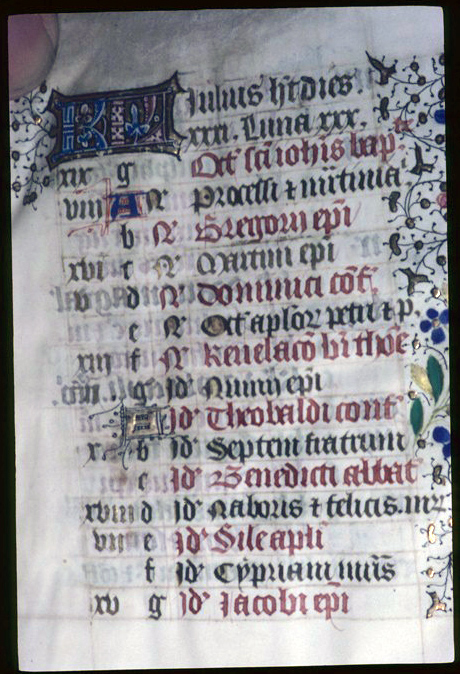 KL Iulius ht dies.
xxxi. Luna xxx.
xix g Oct' sci iohis bap.
viii A N' Processi & mrtinia
b N' Gregorii epi
xvi c N' Martini epi
v d N' Dominici cof.
e N' Oct' aplor petri & p.
xiii f N' Reuelacō bi thoe
g Id' Nunii epi
Id' Theobaldi conf
x b Id' Septem fratrum
c Id' Benedicti abbat
xviii d Id' Naboris & felicis. mr
vii e Id' Sile apli
f Id' Cypriani mris
xv g Id' Iacobi epi